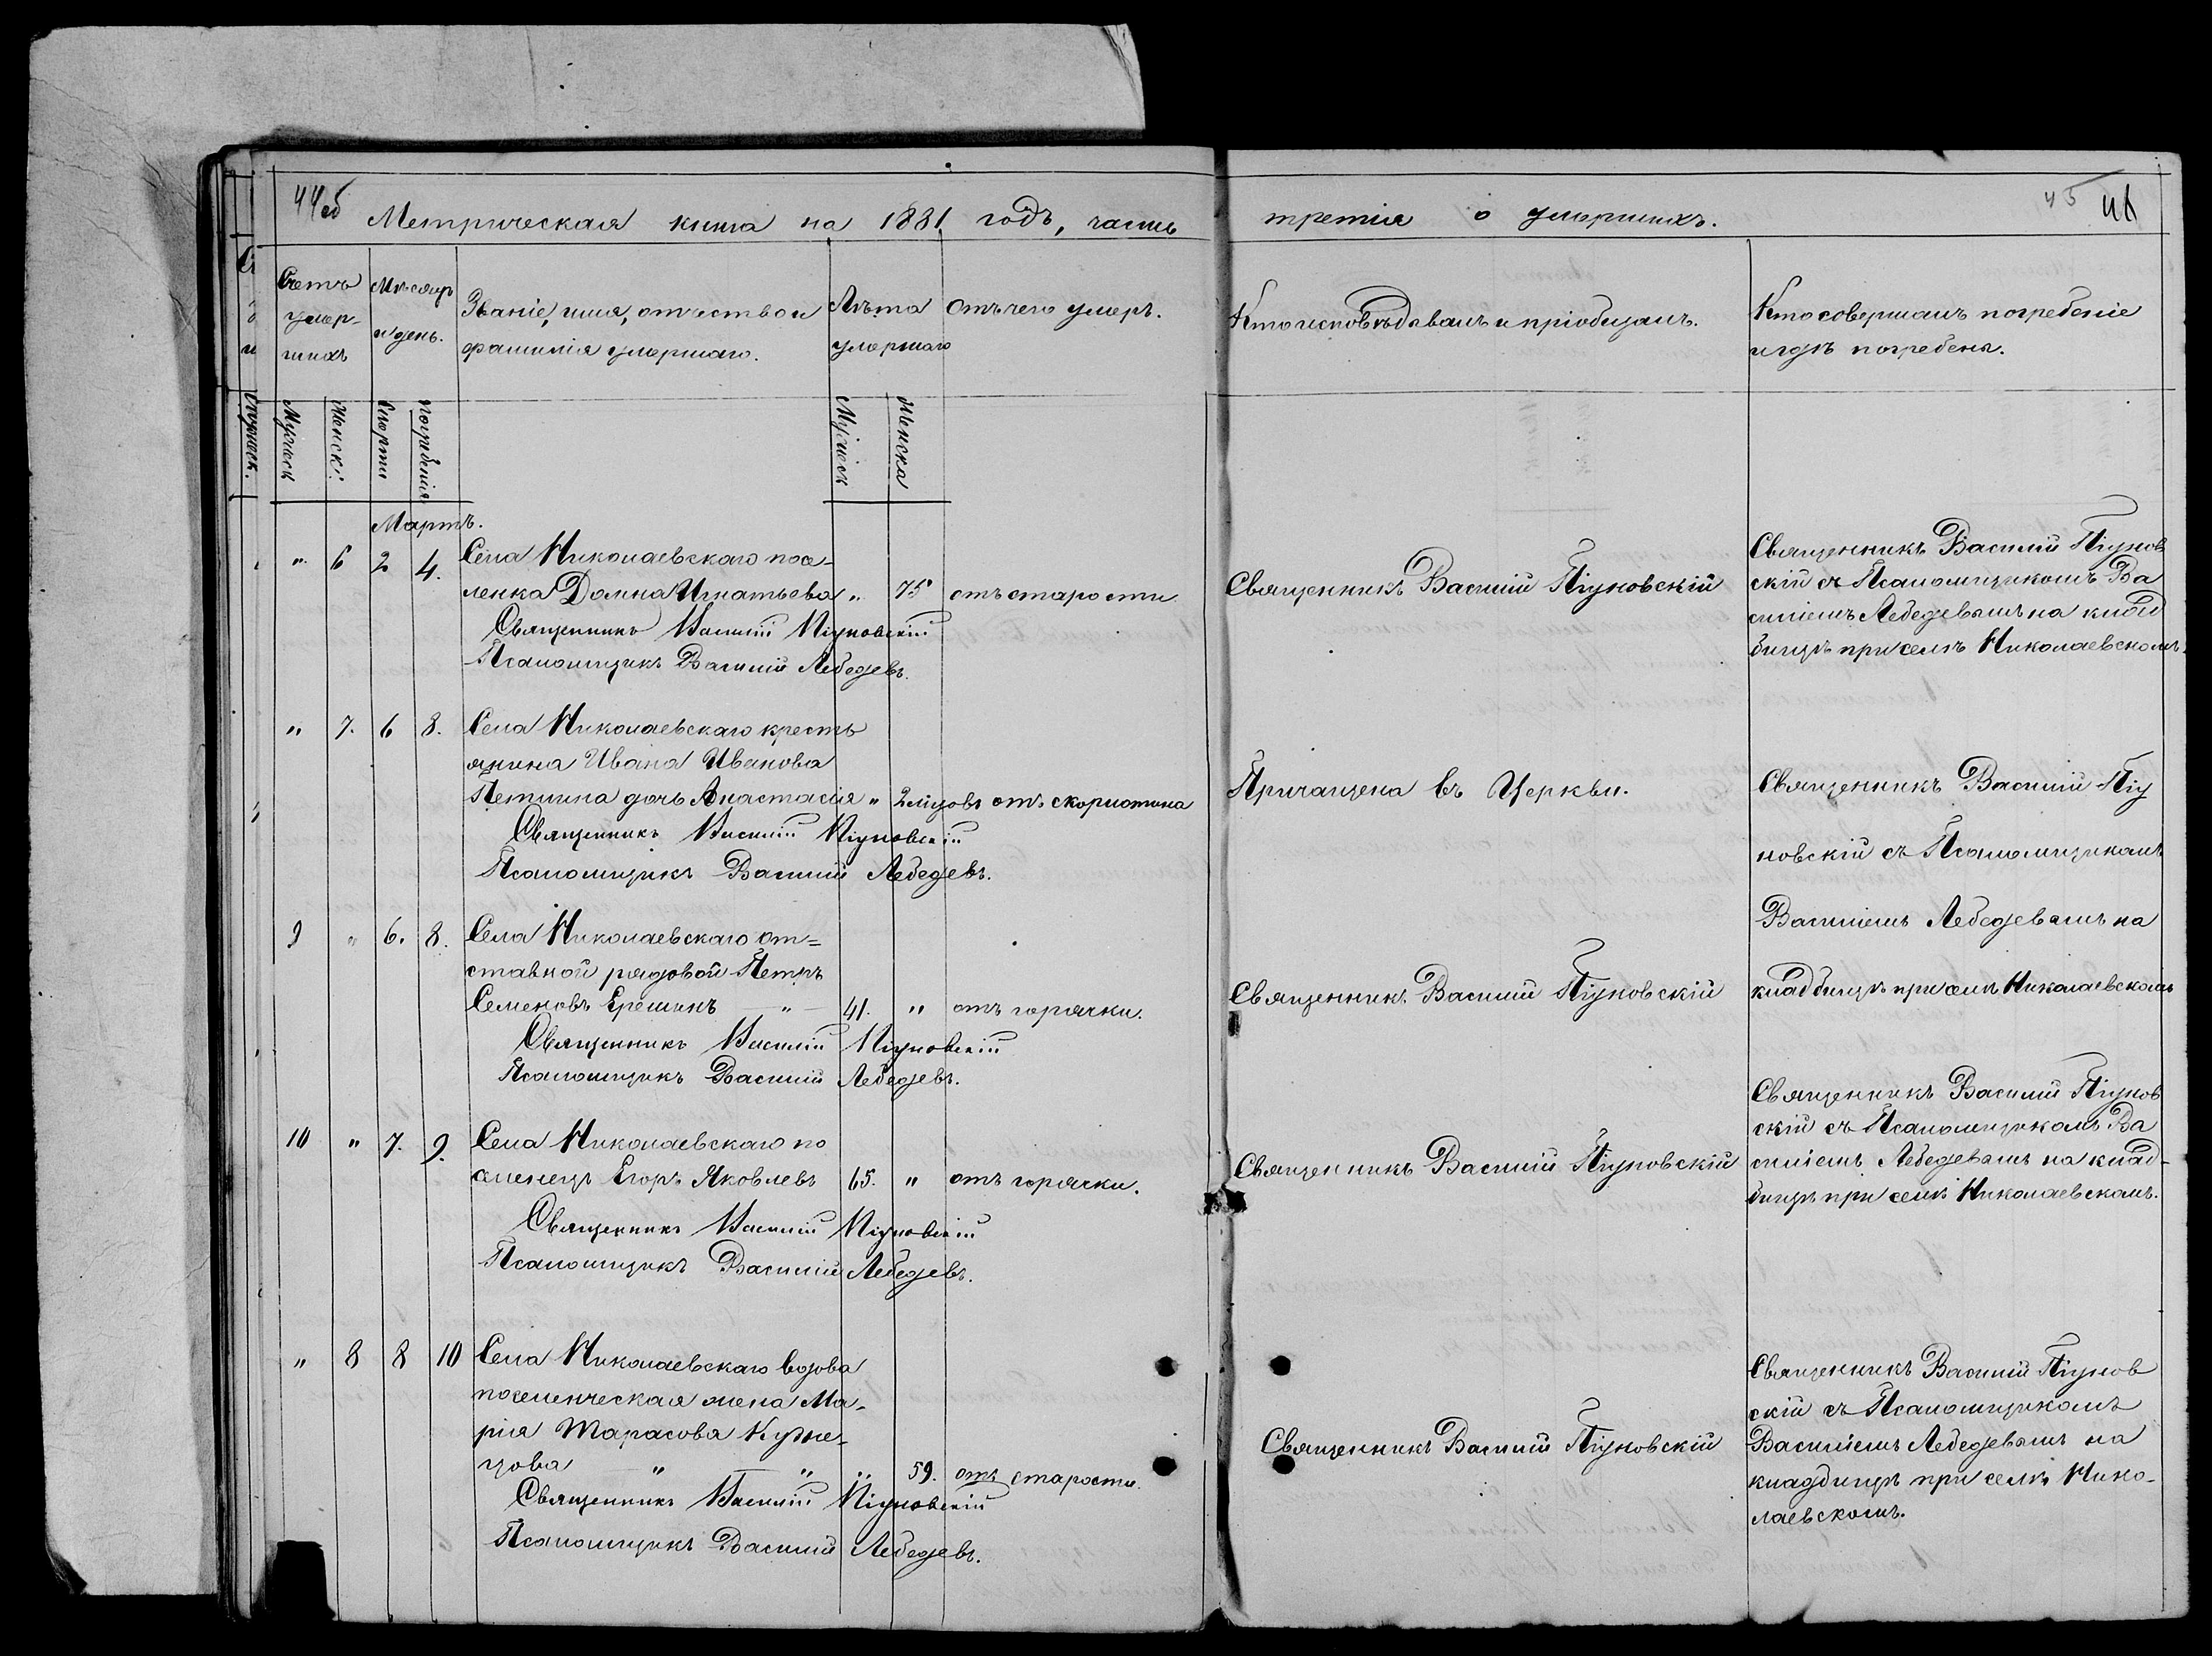 44об
Метрическая книга на 1881 годъ, часть
третія о умершихъ.
45
Счетъ умер-шихъ
Мѣсяцъ и день.
Званіе, имя, отчество и
фамилія умершаго.
Лѣта умершаго
Отъ чего умеръ.
Кто исповѣдавалъ и пріобщалъ.
Кто совершалъ погребеніе
и гдѣ погребены.
Мужеск
Женскі
Смерти
погребенія
Мужеск
Женска
Мартъ.
" 6 2 4. Села Николаевскаго посе-
ленка Домна Игнатьева " 75 отъ старости
Священникъ Василій Піуновскій
Псаломщикъ Василій Лебедевъ.
Священникъ Василій Піуновскій
Священникъ Василій Піунов
скій съ Псаломщикомъ Ва
силіемъ Лебедевымъ на клад
бищѣ при селѣ Николаевскомъ.
" 7. 6 8. Села Николаевскаго кресть
янина Ивана Иванова
дочь Анастасія " 2 отъ скорлатина
Священникъ Василій Піуновскій
Псаломщикъ Василій Лебедевъ.
Причащена въ Церкви.
Священникъ Василій Піу
новскій съ Псаломщикомъ
Василіемъ Лебедевымъ на
кладбищѣ при селѣ Николаевскомъ
9 " 6. 8. Села Николаевскаго от=
ставной рядовой Петръ
Семеновъ " 41. " отъ горячки.
Священникъ Василій Піуновскій
Псаломщикъ Василій Лебедевъ.
Священникъ Василій Піуновскій
10 " 7. 9. Села Николаевскаго по
селенецъ Егоръ Яковлевъ 65. " отъ горячки.
Священникъ Василій Піуновскій
Псаломщикъ Василій Лебедевъ.
Священникъ Василій Піуновскій
Священникъ Василій Піунов
скій съ Псаломщикомъ Ва
силіемъ Лебедевымъ на клад-
бищѣ при селѣ Николаевскомъ.
" 8 8 10 Села Николаевскаго вдова
поселенческая жена Ма-
рія Тарасова Кузне-
цова " " " 59. отъ старости.
Священникъ Василій Піуновскій
Псаломщикъ Василій Лебедевъ.
Священникъ Василій Піуновскій
Священникъ Василій Піунов
скій съ Псаломщикомъ
Василіемъ Лебедевымъ на
кладбищѣ при селѣ Нико-
лаевскомъ.